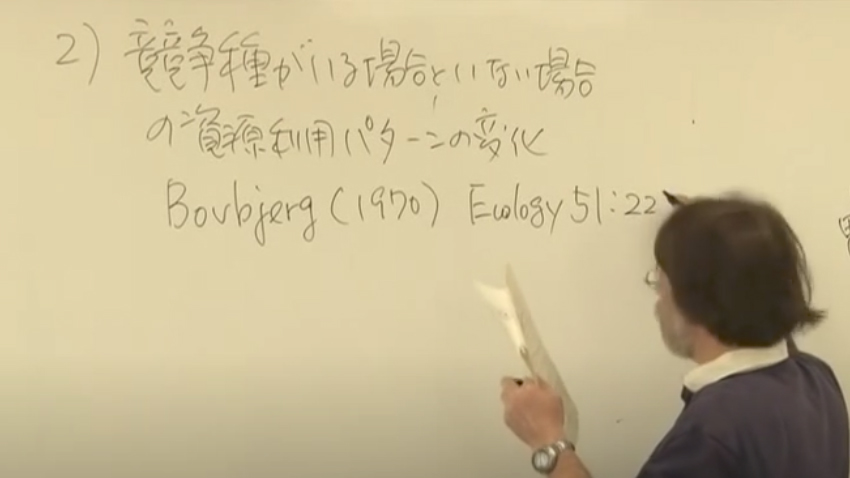 2) 競争種がいる場合といない場合
の資源利用パターンの変化
Bovbjerg (1970) Ecology 51:22